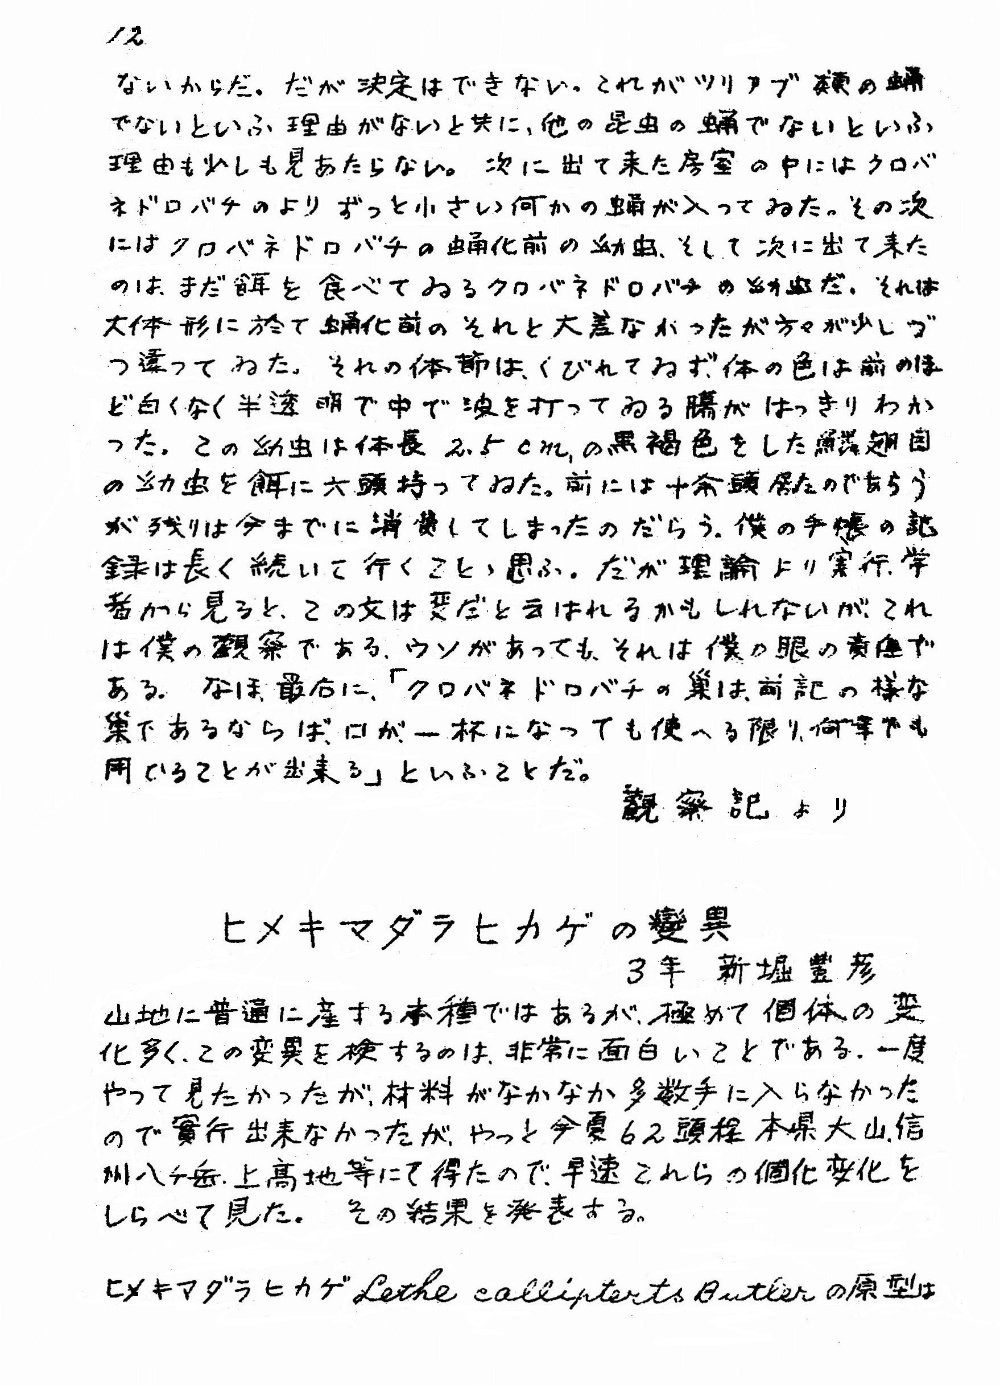 12
ないからだ。だが決定はできない。これがツリアブ類の蛹
でないといふ理由がないと共に、他の昆虫の蛹でないといふ
理由も少しも見あたらない。次に出て来た房室の中にはクロバ
ネドロバチのよりずっと小さい何かの蛹が入ってゐた。その次
にはクロバネドロバチの蛹化前の幼虫、そして次に出て来た
のは、まだ餌を食べてゐるクロバネドロバチの幼虫だ。それは
大体形に於て蛹化前のそれと大差なかったが方々が少しづ
つ違ってゐた。それの体節は、くびれてゐず、体の色は前のほ
ど白くなく半透明で中で波を打ってゐる腸がはっきりわか
った。この幼虫は体長2.5cm,の黒褐色をした鱗翅目
の幼虫を餌に六頭持ってゐた。前には十余頭居たのであらう
が残りは今までに消費してしまったのだらう。僕の手帳の記
録は長く続いて行くことゝ思ふ。だが理論より実行、学
者から見ると、この文は変だと云はれるかもしれないが、これ
は僕の観察である、ウソがあっても、それは僕の眼の責任で
ある。なほ、最后に、「クロバネドロバチの巣は、前記の様な
巣であるならば、口が、一杯になっても使へる限り、何年でも
用ひることが出来る」といふことだ。
觀察記より
ヒメキマダラヒカゲの變異
3年 新堀豊彦
山地に普通に産する本種ではあるが、極めて個体の変
化多く、この変異を検するのは、非常に面白いことである。一度
やって見たかったが、材料がなかなか多数手に入らなかった
ので實行出来なかったが、やっと今夏62頭程本県大山、信
州八ヶ岳、上高地等にて得たので、早速これらの個化変化を
しらべて見た。その結果を発表する。
ヒメキマダラヒカゲ Lethe callipterts Butlerの原型は